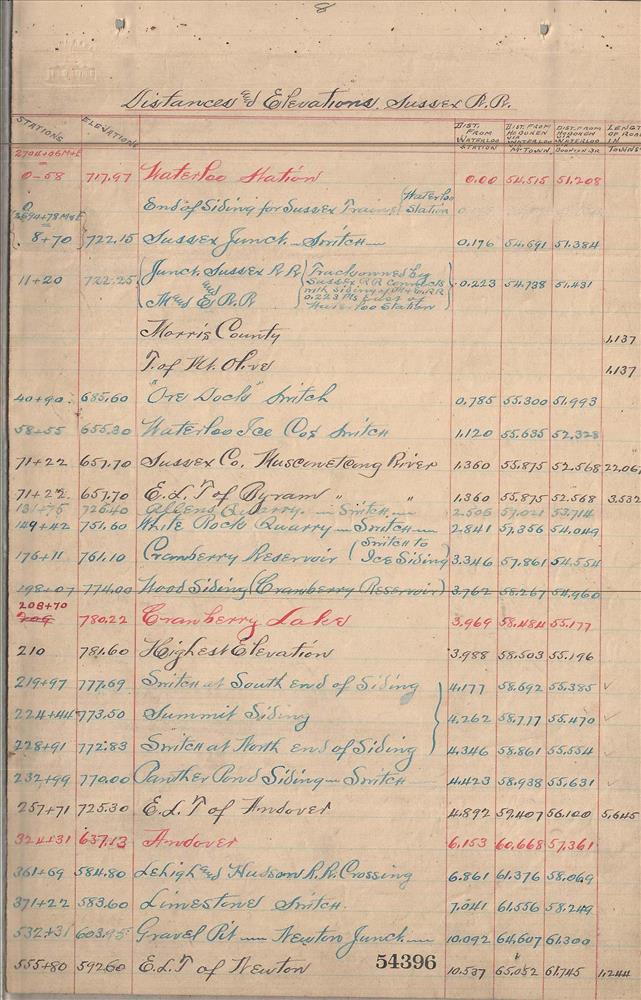 8
Distances and Elevations, Sussex R.R.
STATIONS ELEVATIONS DIST. FROM WATERLOO STATION DIST. FROM HOBOKEN VIA WATERLOO M'TOWN DIST. FROM HOBOKEN VIA WATERLOO BOONTON BR. LENGTH OF ROAD IN TOWNS
2704+06 M+E
0-58 717.97 Waterloo Station 0.00 54.515 51.208
0 End of Siding for Sussex Trains (Waterloo Station
2694+78 M+E
8+70 722.15 Sussex Junct. Switch 0.176 54.691 51.384
11+20 722.25 (Junct. Sussex R R and M and E. R. R (Track owned by Sussex RR connects with siding of M+E RR 0.223 Ms East of Waterloo Station) 0.223 54.738 51.431
Morris County 1.137
T. of Mt. Olive 1.137
40+90 685.60 "Ore Dock" Switch 0.785 55.300 51.993
58+55 655.30 Waterloo Ice Cos Switch 1.120 55.635 52.328
71+22 651.70 Sussex Co, Musconetcong River 1.360 55.875 52.568 22.067
71+22 651.70 E. L. T of Byram " " 1.360 55.875 52.568 3.532
131+75 726.40 Allens Quarry. Switch 2.506 57.021 53.714
149+42 751.60 White Rock Quarry Switch 2.841 57.356 54.049
176+11 761.10 Cranberry Reservoir (Switch to Ice Siding) 3.346 57.861 54.554
198+07 774.00 Wood Siding (Cranberry Reservoir) 3.762 58.267 54.960
208+70
209 780.22 Cranberry Lake 3.969 58.484 55.177
210 781.60 Highest Elevation 3.988 58.503 55.196
219+97 777.69 Switch at South end of Siding 4.177 58.692 55.385 ✓
224+44 773.50 Summit Siding 4.262 58.777 55.470 ✓
228+91 772.83 Switch at North end of Siding 4.346 58.861 55.554
232+99 770.00 Panther Pond Siding Switch 4.423 58.938 55.631 ✓
257+71 725.30 E. L. T of Andover 4.892 59.407 56.100 5.645
324+31 637.13 Andover 6.153 60.668 57.361
361+69 584.80 Lehigh and Hudson R.R. Crossing 6.861 61.376 58.069
371+22 583.60 Limestone Switch. 7.041 61.556 58.249
532+31 603.95 Gravel Pit Newton Junct. 10.092 64.607 61.300
555+80 592.60 E. L. T of Newton 54396 10.537 65.052 61.745 1.244